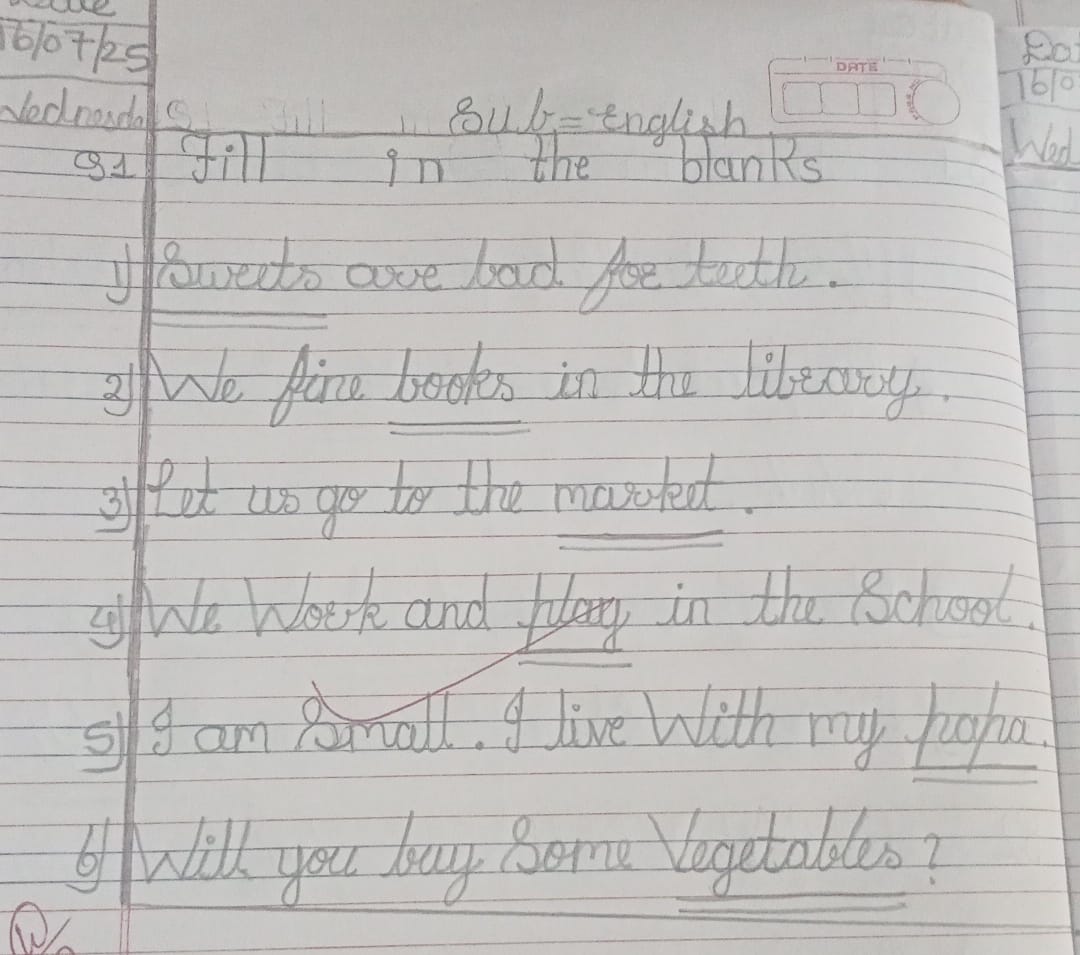 16/07/25
Wednesda
Sub = English
DATE
Q1 Fill in the blanks
1) Sweets are bad for teeth.
2) We fine books in the library.
3) Let us go to the market.
4) We Work and play in the School.
5) I am Small. I live With my papa.
6) Will you buy Some Vegetables?
16/0
Wed